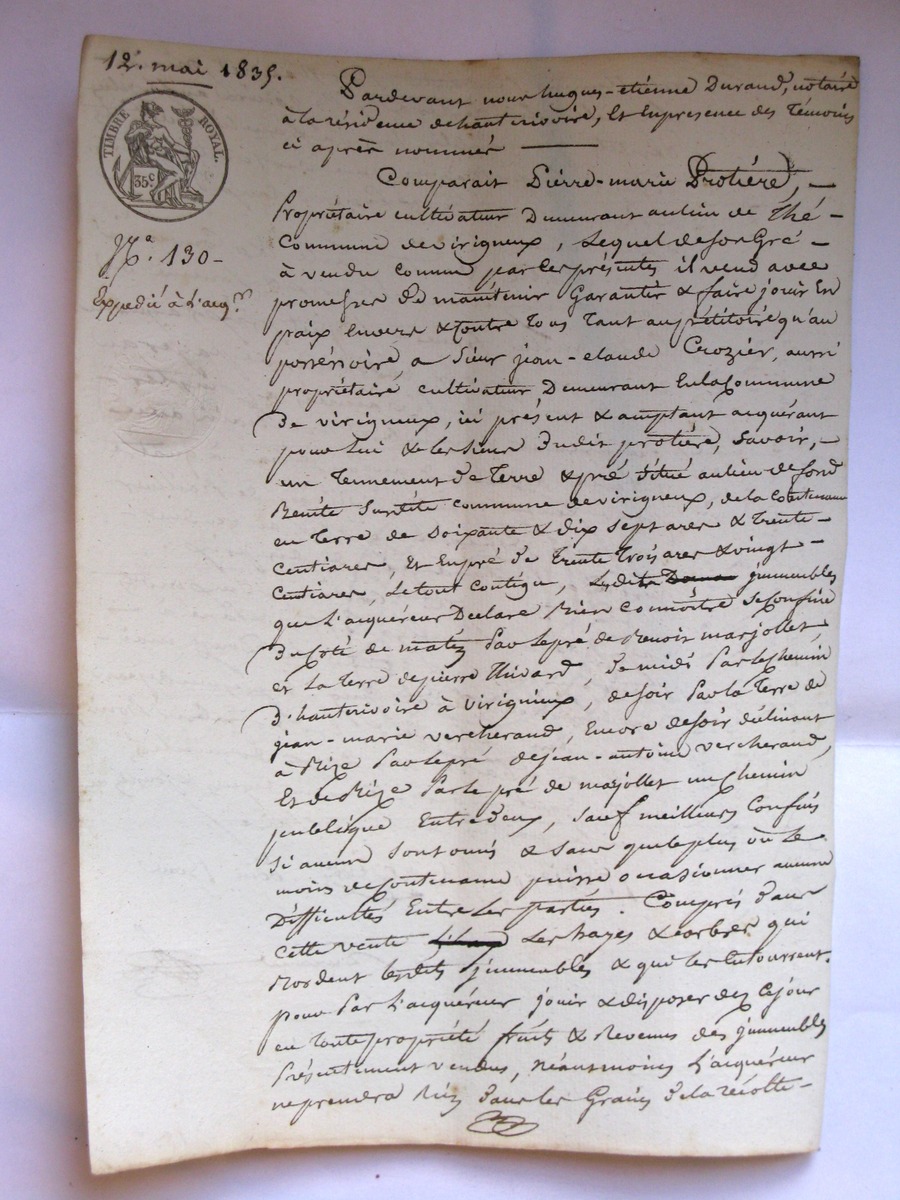 12. mai 1835.
TIMBRE ROYAL.
35 c
N.a 130 -
Expedié à l'acq.r
Pardevant nous hugues-etiénne Durand, notaire
à la résidence de hauterivoire, et En presence des Témoins
ci après nommés —
Comparait Pierre-marie Protiére, -
Propriétaire cultivateur Demeurant au lieu de Thé -
Commune de virigneux, Lequel de son Gré -
à vendu comme par les présentes il vend avec
promesse de maintenir Garantir & faire jouir En
paix Envers & Contre Tous Tant au pétitoire qu'au
possessoire a Sieur jean-claude Crozier, aussi
propriétaire cultivateur Demeurant En la Commune
De virigneux, ici présent & acceptant acquérant
pour Lui & les siens Dudit protiére, Savoir, -
un Tennement de Terre & pré situé au lieu de fond
Benite Susdite commune de virigneux, de la Contenance
en Terre de Soixante & dix sept ares & Trente -
Centiares, Et En pré de Trente Trois ares & vingt -
Centiares, Le tout contigu, Lesdits immeubles
que L'acquéreur Déclare Bien connoître Se Confine
Du Coté de matin Par Le pré de Benoit marjollet
et La Terre de pierre Thivard, De midi Par Le Chemin
D'hauterivoire à virigneux, de soir Par La Terre de
jean-marie vercherand, Encore de soir déclinant
à Bize Par Le pré de jean-antoine vercherand,
Et de Bize Par Le pré de majollet un Chemin
publique Entre deux, Sauf meilleurs Confins
Si aucun Sont omis & Sans que le plus ou Le
moins de Contenance puisse occasionner aucune
Difficultés Entre Les parties. Compris Dans
Cette vente Les hayes & arbres qui
Bordent Lesdits immeubles & qui les Entourrent.
pour Par L'acquéreur jouir & disposer dez Ce jour
en Toute propriété fruits & Revenus des immeubles
Présentement vendus, néantmoins L'acquéreur
ne prendra Rien Dans Les Grains De la récolte -